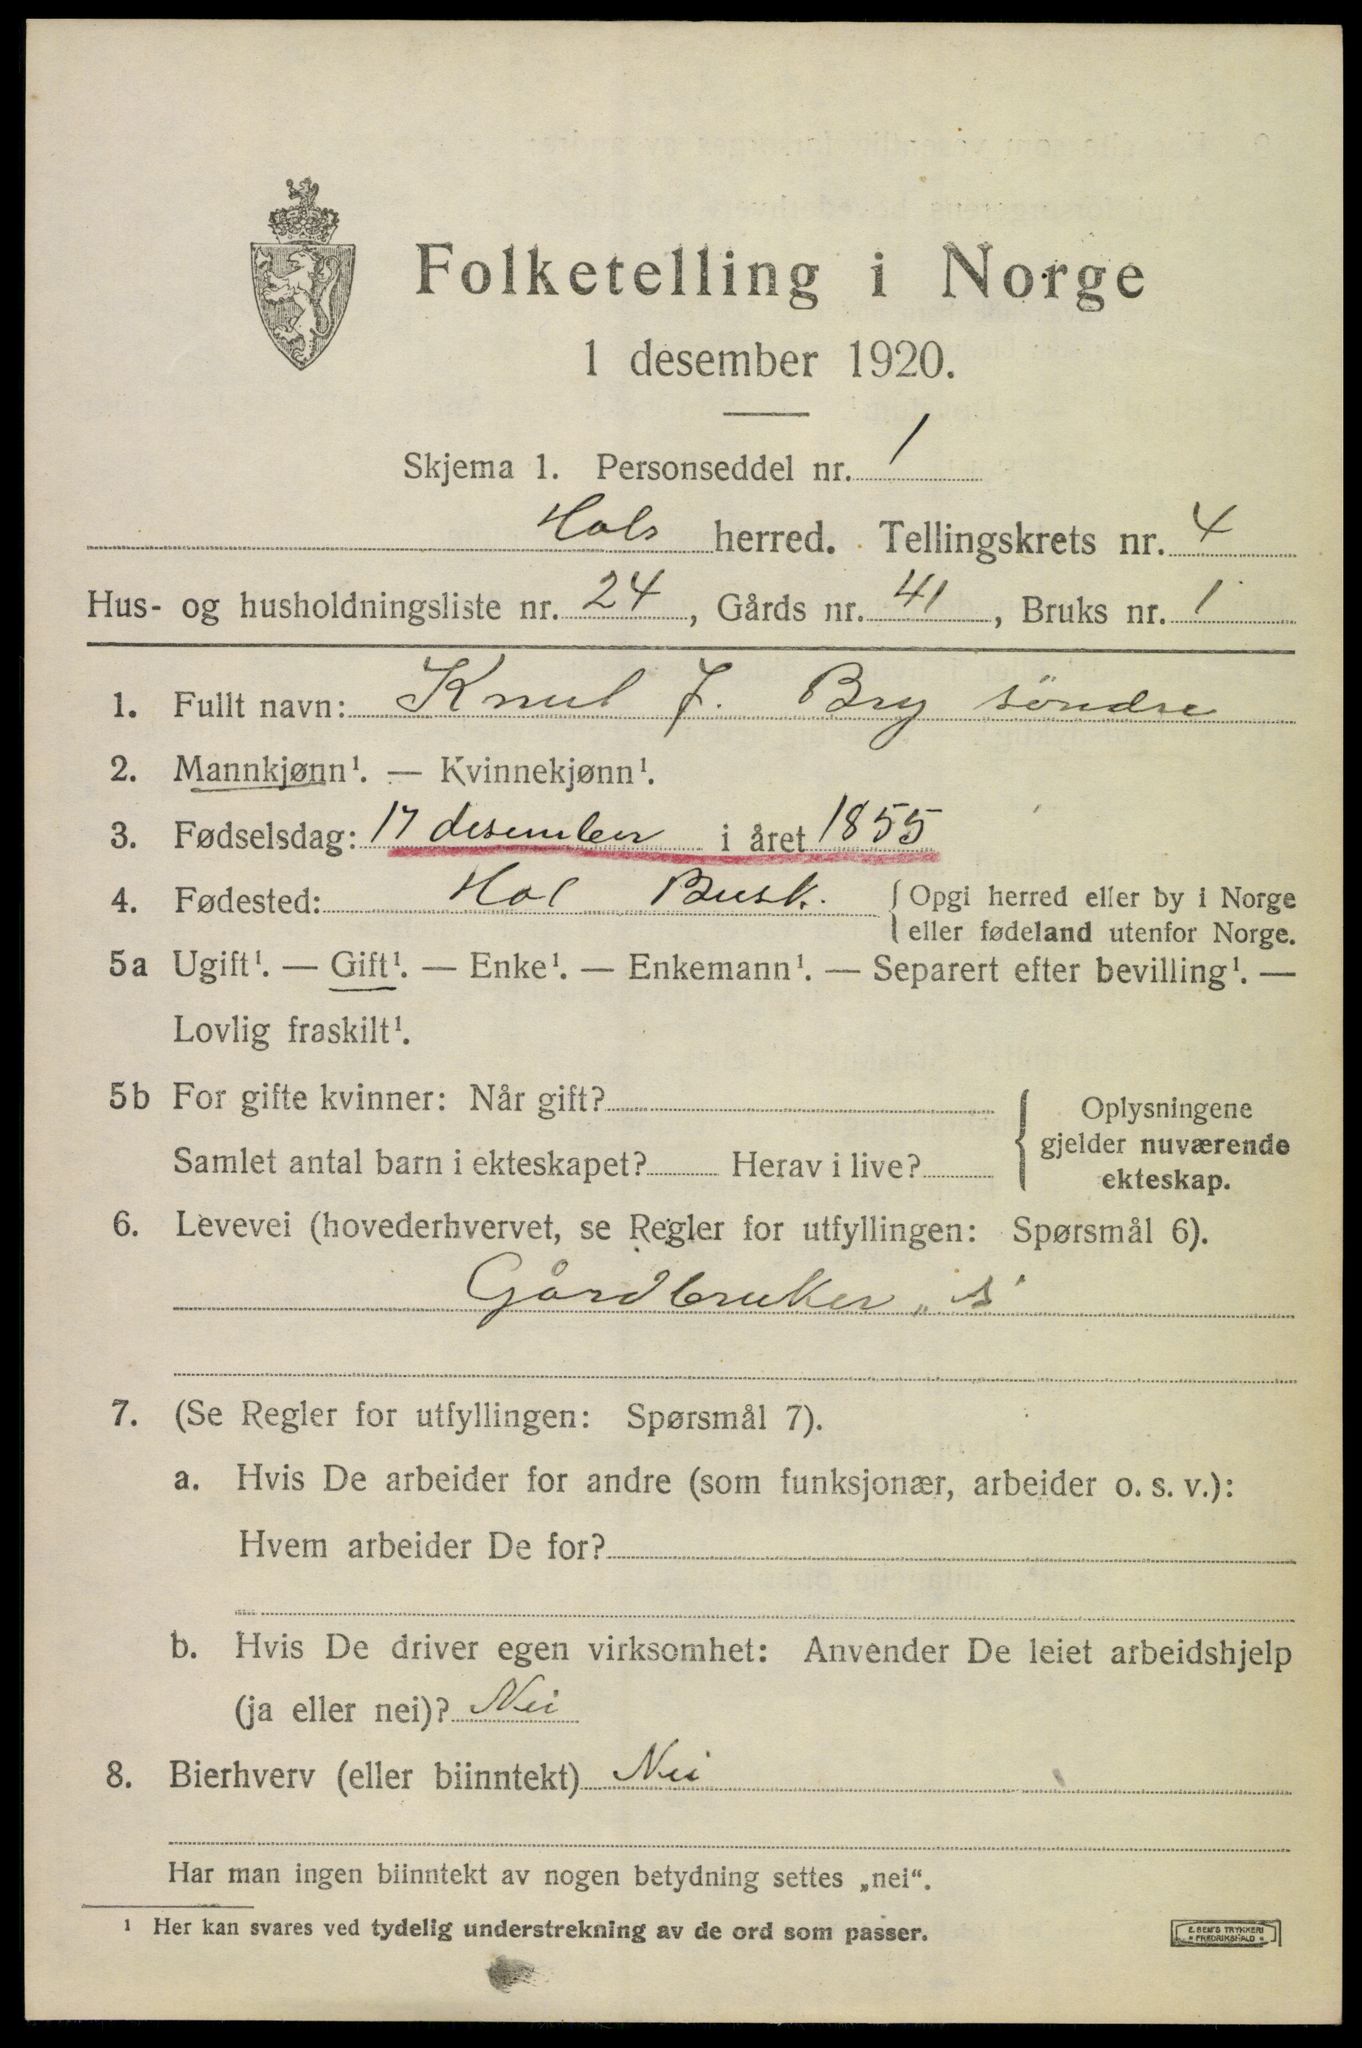 Folketelling i Norge
1 desember 1920.
Skjema 1. Personseddel nr. 1
Hols herred. Tellingskrets nr. 4
Hus- og husholdningsliste nr. 24, Gårds nr. 41, Bruks nr. 1
1. Fullt navn: Knut J. Bry söndre
2. Mannkjønn¹. — Kvinnekjønn¹.
3. Fødselsdag: 17 desember i året 1855
4. Fødested: Hol Busk. { Opgi herred eller by i Norge
eller fødeland utenfor Norge.
5a Ugift¹. — Gift¹. — Enke¹. — Enkemann¹. — Separert efter bevilling¹. —
Lovlig fraskilt¹.
5b For gifte kvinner: Når gift?
Samlet antal barn i ekteskapet? Herav i live?
Oplysningene
gjelder nuværende
ekteskap.
6. Levevei (hovederhvervet, se Regler for utfyllingen: Spørsmål 6).
Gårdbruker „s"
7. (Se Regler for utfyllingen: Spørsmål 7).
a. Hvis De arbeider for andre (som funksjonær, arbeider o. s. v.):
Hvem arbeider De for?
b. Hvis De driver egen virksomhet: Anvender De leiet arbeidshjelp
(ja eller nei)? Nei
8. Bierhverv (eller biinntekt) Nei
Har man ingen biinntekt av nogen betydning settes „nei“.
¹ Her kan svares ved tydelig understrekning av de ord som passer.
E. SEM'S TRYKKERI
FREDRIKSHALD